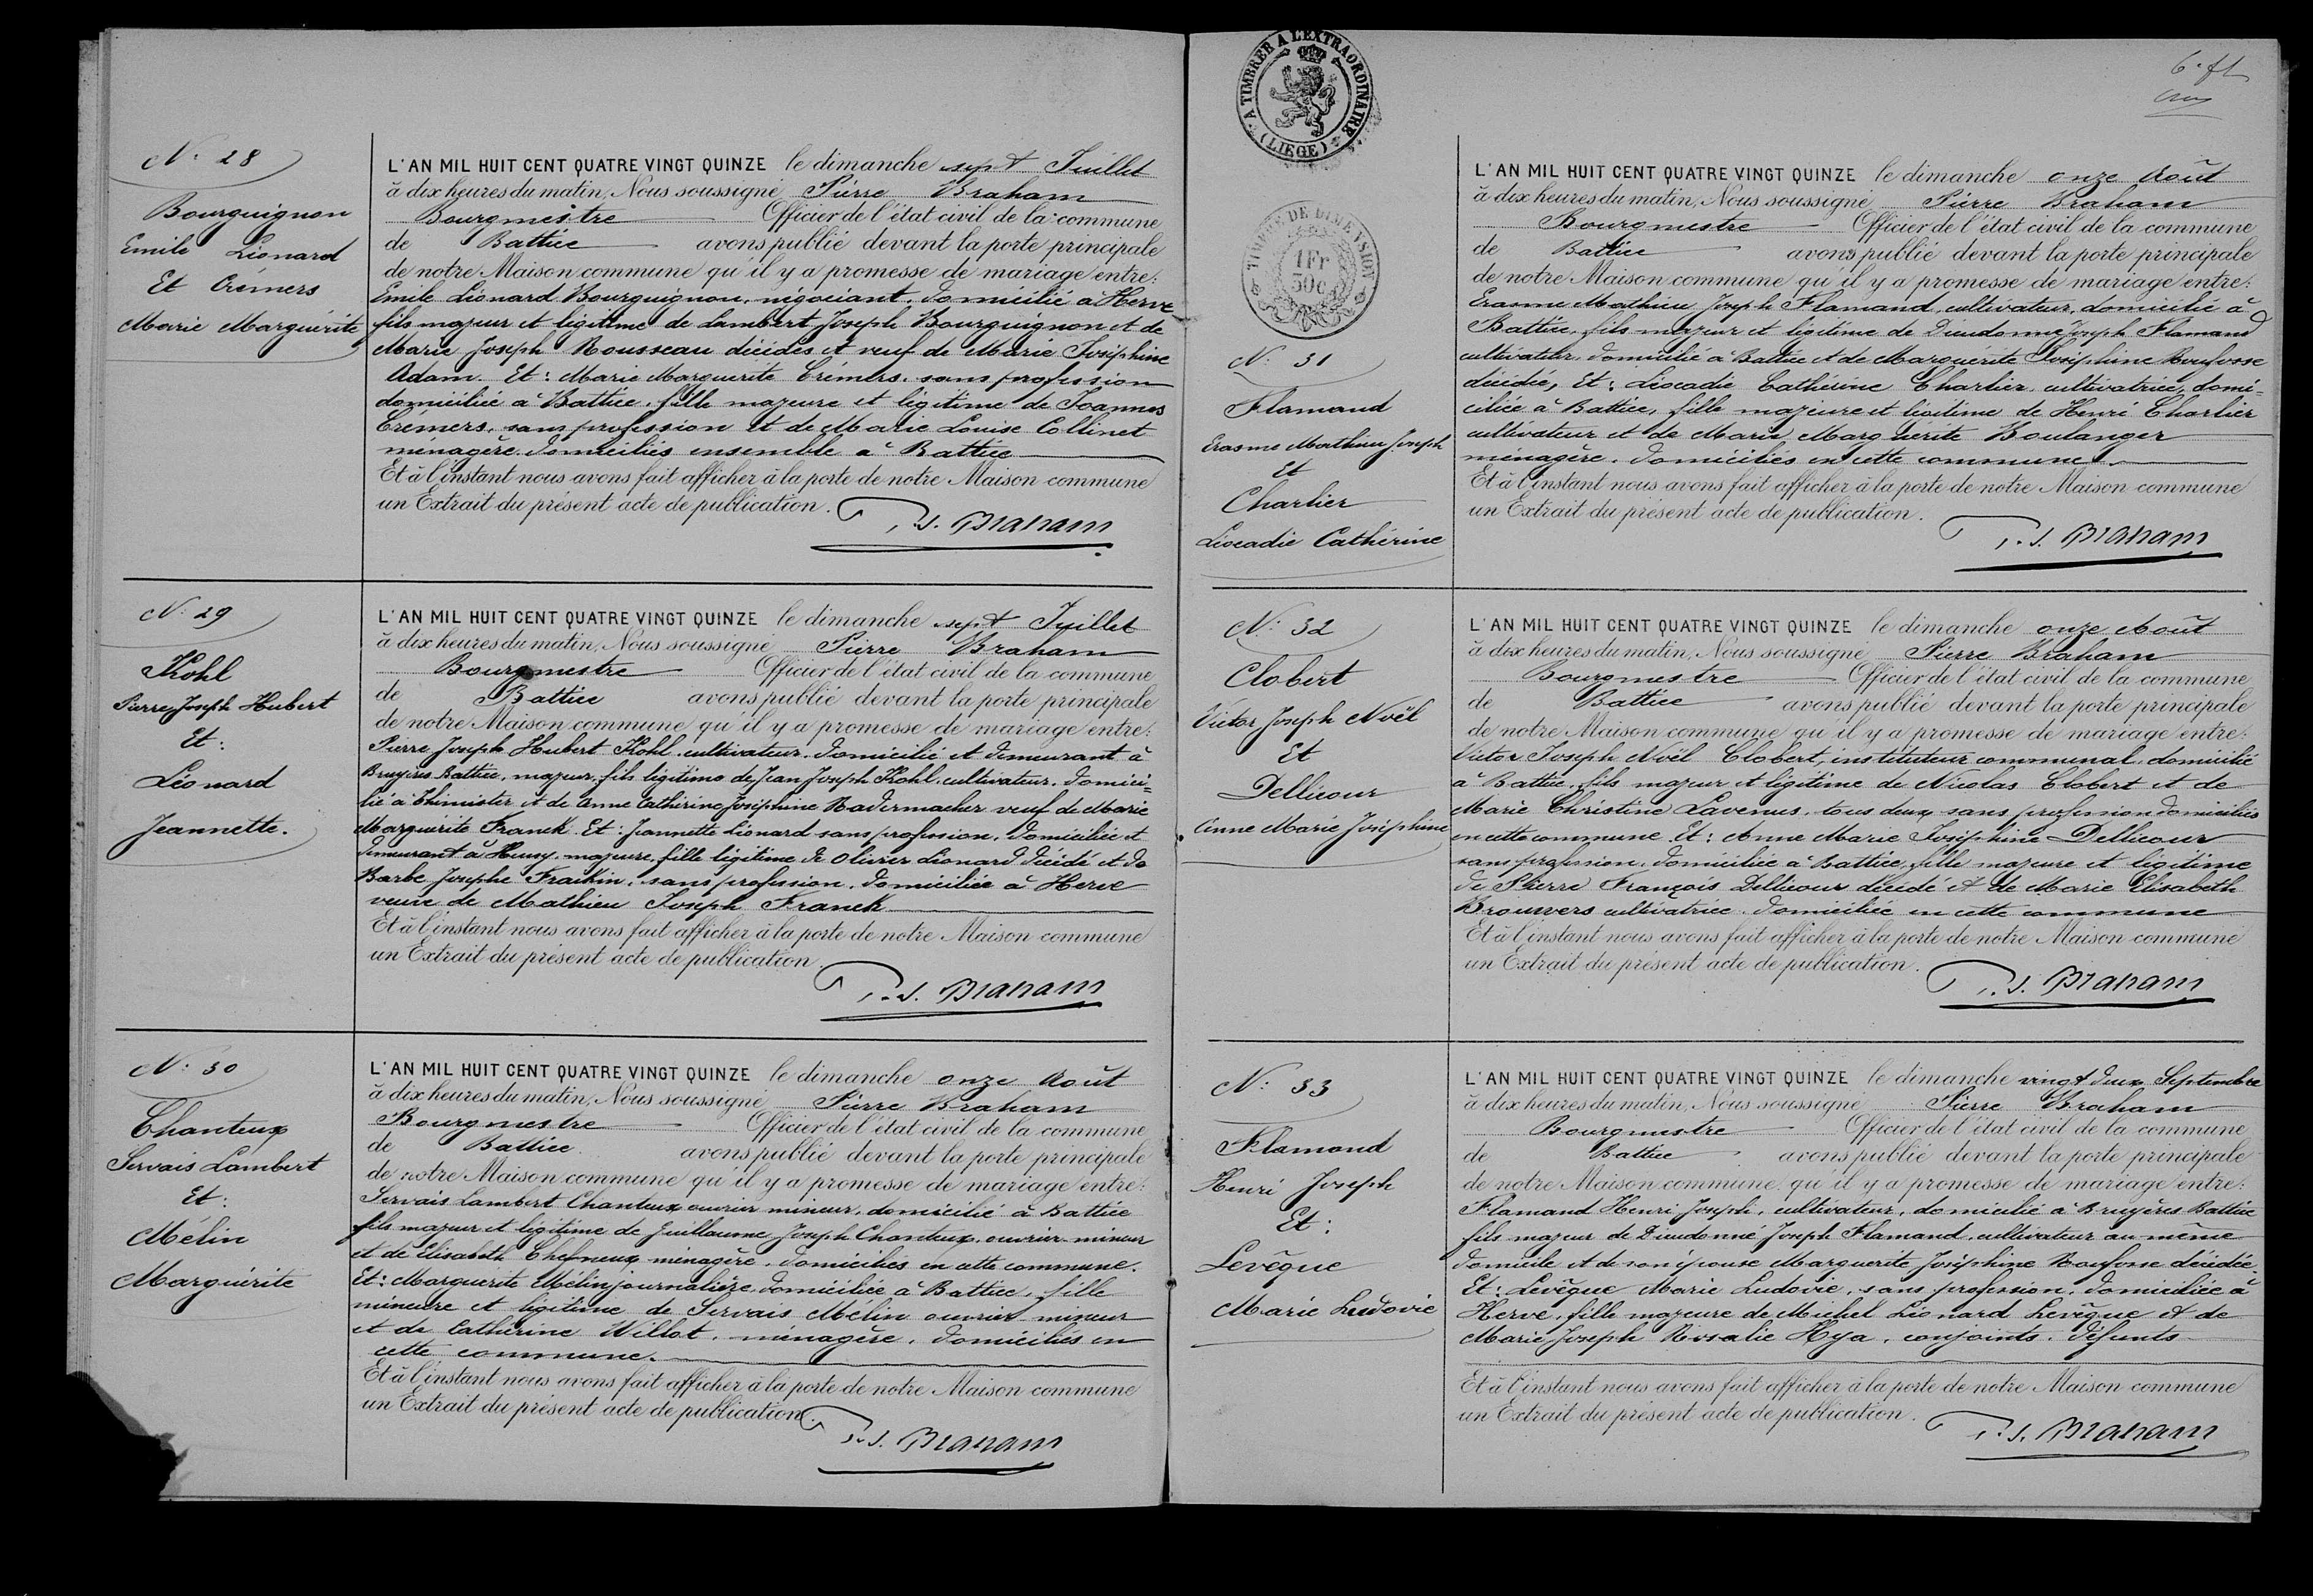 N. 28
Bourguignon
Emile Léonard
Et Crémers
Marie Marguérite
L'AN MIL HUIT CENT QUATRE VINGT QUINZE le dimanche sept Juillet
à dix heures du matin, Nous soussigné Pierre Braham
Bourgmestre Officier de l'état civil de la commune
de Battice avons publié devant la porte principale
de notre Maison commune qu'il y a promesse de mariage entre:
Emile Léonard Bourguignon, négociant, domicilié à Herve
fils majeur et légitime de Lambert Joseph Bourguignon et de
Marie Joseph Rousseau décédés et veuf de Marie Joséphine
Adam. Et: Marie Marguerite Crémers, sans profession
domiciliée à Battice, fille majeure et légitime de Joannes
Crémers, sans profession et de Marie Louise Collinet
ménagère, domiciliés ensemble à Battice
Et à l'instant nous avons fait afficher à la porte de notre Maison commune
un Extrait du présent acte de publication.
P. J. Braham
N: 29
Kohl
Pierre Joseph Hubert
Et:
Léonard
Jeannette.
L'AN MIL HUIT CENT QUATRE VINGT QUINZE le dimanche sept Juillet
à dix heures du matin, Nous soussigné Pierre Braham
Bourgmestre Officier de l'état civil de la commune
de Battice avons publié devant la porte principale
de notre Maison commune qu'il y a promesse de mariage entre:
Pierre Joseph Hubert Kohl, cultivateur, domicilié et demeurant à
Bruyères Battice, majeur, fils légitime de Jean Joseph Kohl, cultivateur, domici=
lié à Thimister et de Anne Cathérine Joséphine Radermacher veuf de Marie
Marguérite Franck. Et: Jeannette Léonard sans profession, domiciliée et
demeurant à Heusy, majeure, fille légitime de Olivier Léonard décédé et de
Barbe Josephe Fraikin, sans profession, domiciliée à Herve
veuve de Mathieu Joseph Franck
Et à l'instant nous avons fait afficher à la porte de notre Maison commune
un Extrait du présent acte de publication.
P. J. Braham
N: 30
Chanteux
Servais Lambert
Et:
Mélin
Marguérite
L'AN MIL HUIT CENT QUATRE VINGT QUINZE le dimanche onze Août
à dix heures du matin, Nous soussigné Pierre Braham
Bourgmestre Officier de l'état civil de la commune
de Battice avons publié devant la porte principale
de notre Maison commune qu'il y a promesse de mariage entre:
Servais Lambert Chanteux ouvrier mineur, domicilié à Battice
fils majeur et légitime de Guillaume Joseph Chanteux, ouvrier mineur
et de Elisabeth Chefneux, ménagère, domiciliés en cette commune.
Et: Marguerite Mélin journalière, domiciliée à Battice, fille
mineure et légitime de Servais Mélin ouvrier mineur
et de Catherine Willot, ménagère, domiciliés en
cette commune.
Et à l'instant nous avons fait afficher à la porte de notre Maison commune
un Extrait du présent acte de publication.
P. J. Braham
6. ft
A TIMBRER A L'EXTRAORDINAIRE
(LIEGE)
TIMBRE DE DIMENSION
1 Fr
50 c
N: 31
Flamand
Erasme Mathieu Joseph
Et
Charlier
Léocadie Cathérine
L'AN MIL HUIT CENT QUATRE VINGT QUINZE le dimanche onze Août
à dix heures du matin, Nous soussigné Pierre Braham
Bourgmestre Officier de l'état civil de la commune
de Battice avons publié devant la porte principale
de notre Maison commune qu'il y a promesse de mariage entre:
Erasme Mathieu Joseph Flamand, cultivateur, domicilié à
Battice, fils majeur et légitime de Dieudonné Joseph Flamand
cultivateur, domicilié à Battice et de Marguerite Joséphine Roufosse
décédée, Et: Léocadie Cathérine Charlier cultivatrice, domi=
ciliée à Battice, fille majeure et légitime de Henri Charlier
cultivateur et de Marie Marguérite Boulanger
ménagère, domiciliés en cette commune.
Et à l'instant nous avons fait afficher à la porte de notre Maison commune
un Extrait du présent acte de publication.
P. J. Braham
N: 32
Clobert
Victor Joseph Noël
Et
Dellicour
Anne Marie Joséphine
L'AN MIL HUIT CENT QUATRE VINGT QUINZE le dimanche onze Août
à dix heures du matin, Nous soussigné Pierre Braham
Bourgmestre Officier de l'état civil de la commune
de Battice avons publié devant la porte principale
de notre Maison commune qu'il y a promesse de mariage entre:
Victor Joseph Noël Clobert, instituteur communal, domicilié
à Battice, fils majeur et légitime de Nicolas Clobert et de
Marie Christine Lavenus, tous deux sans profession domiciliés
en cette commune Et: Anne Marie Joséphine Dellicour
sans profession, domiciliée à Battice, fille majeure et légitime
de Pierre François Dellicour décédé et de Marie Elisabeth
Brouwers cultivatrice, domiciliée en cette commune
Et à l'instant nous avons fait afficher à la porte de notre Maison commune
un Extrait du présent acte de publication.
P. J. Braham
N: 33
Flamand
Henri Joseph
Et:
Levêque
Marie Ludovie
L'AN MIL HUIT CENT QUATRE VINGT QUINZE le dimanche vingt deux Septembre
à dix heures du matin, Nous soussigné Pierre Braham
Bourgmestre Officier de l'état civil de la commune
de Battice avons publié devant la porte principale
de notre Maison commune qu'il y a promesse de mariage entre:
Flamand Henri Joseph, cultivateur, domicilié à Bruyères Battice
fils majeur de Dieudonné Joseph Flamand, cultivateur au même
domicile et de son épouse Marguerite Joséphine Roufosse décédée.
Et: Levêque Marie Ludovie, sans profession, domiciliée à
Herve, fille majeure de Michel Léonard Levêque et de
Marie Joseph Rosalie Hya, conjoints, défunts
Et à l'instant nous avons fait afficher à la porte de notre Maison commune
un Extrait du présent acte de publication.
P. J. Braham